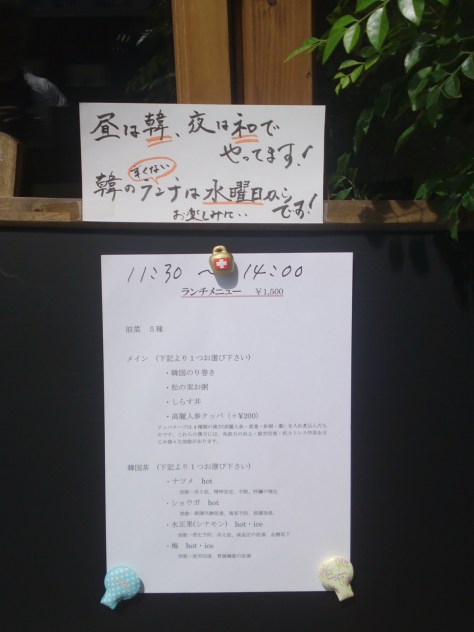 昼は韓、夜は和で
やってます!
すくない
韓のランチは水曜日から
お楽しみに… です!
11:30 〜 14:00
ランチメニュー ¥1,500
前菜 5種
メイン (下記より1つお選び下さい)
・韓国のり巻き
・松の実お粥
・しらす丼
・高麗人参クッパ (+¥200)
韓国茶 (下記より1つお選び下さい)
・ナツメ hot
・ショウガ hot
・水正果(シナモン) hot・ice
・梅 hot・ice